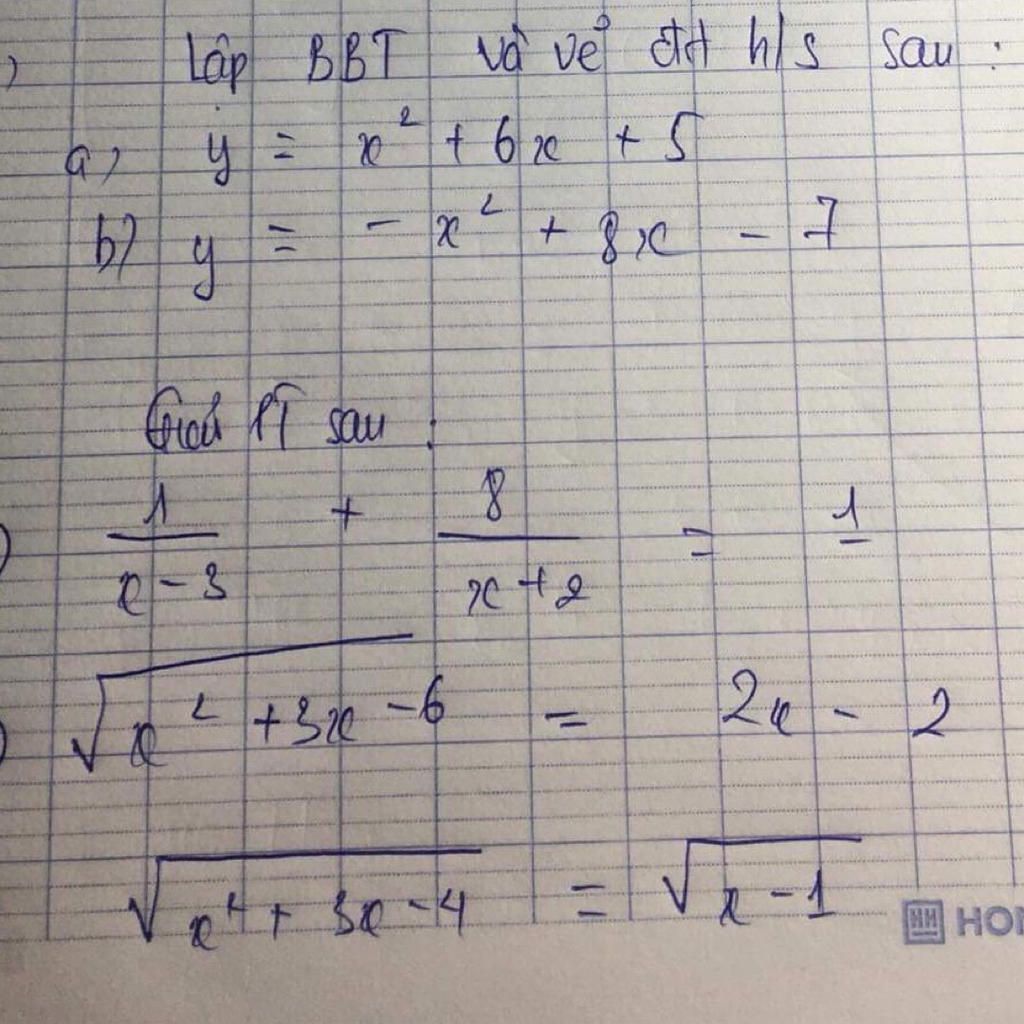 ) Lập BBT và vẽ đtt h/s sau :
a, y = x² + 6x + 5
b) y = - x² + 8x - 7
Giải PT sau :
) 1/(x-3) + 8/(x+2) = 1
) √(x² + 3x - 6) = 2x - 2
√(x² + 3x - 4) = √(x - 1)
HH HO